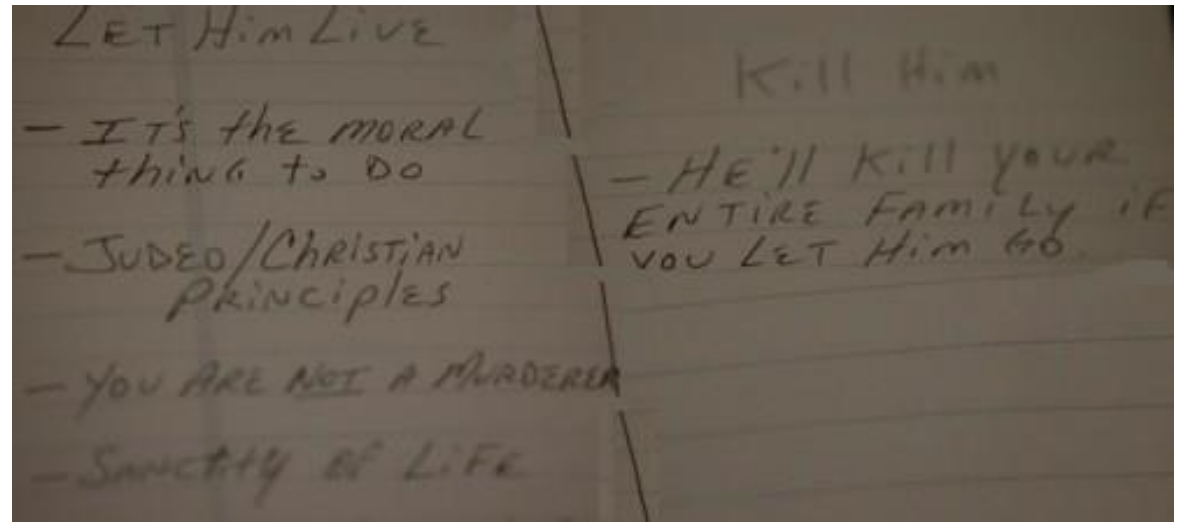 LET Him LiVE
- IT'S thE MORAL
thiNG to DO
- JUDEO/ChRiSTiAN
PRiNCiplES
- YOU ARE NOT A MURDERER
- SANCtitY OF LiFE
Kill Him
- HE'll Kill YOUR
ENTiRE FAMiLY iF
YOU LET Him GO.